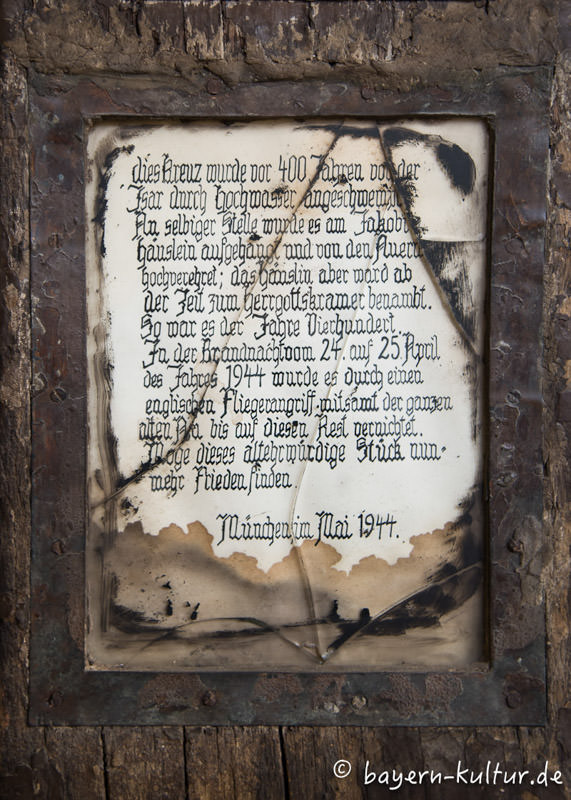 dies Kreuz wurde vor 400 Jahren von der
Isar durch Hochwasser angeschwemmt.
An selbiger Stelle wurde es am Jakobi
häuslein aufgehangen und von den Auern
hochverehret; das häuslin aber ward ab
der Zeit zum Herrgottskramer benambt.
So war es der Jahre Vierhundert.
In der Brandnacht vom 24. auf 25. April
des Jahres 1944 wurde es durch einen
englischen Fliegerangriff mitsamt der ganzen
alten Au bis auf diesen Rest vernichtet.
Möge dieses altehrwürdige Stück nun-
mehr Frieden finden.
München, im Mai 1944.
© bayern-kultur.de